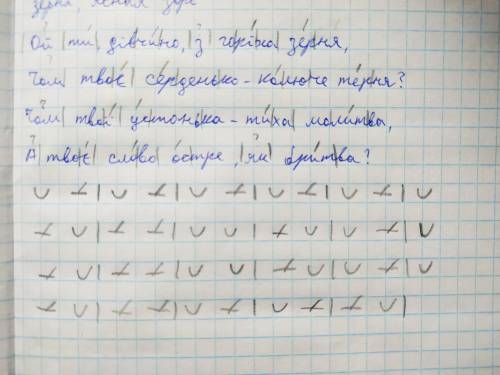 зерня, ясная зоре
Ой ти дівчино, з горіха зерня,
Чом твоє серденько - колюче терня?
Чом твої устонька - тиха молитва,
А твоє слово остре, як бритва?